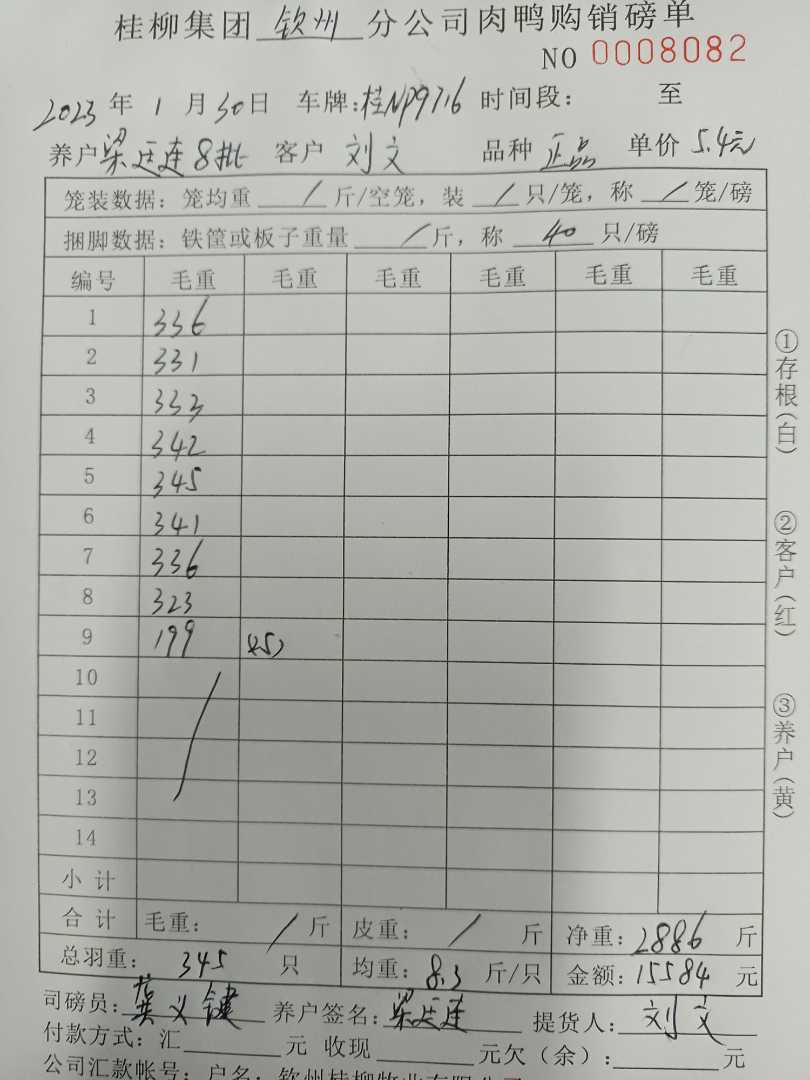 桂柳集团 钦州 分公司肉鸭购销磅单
NO 0008082
2023 年 1 月 30 日 车牌:桂NP9716 时间段: 至
养户 梁廷连 8批 客户 刘文 品种 正品 单价 5.4元
笼装数据: 笼均重 / 斤/空笼, 装 / 只/笼, 称 / 笼/磅
捆脚数据: 铁筐或板子重量 / 斤, 称 40 只/磅
编号 毛重 毛重 毛重 毛重 毛重 毛重
1 336
2 331
3 333
4 342
5 345
6 341
7 336
8 323
9 199 (25)
10
11
12
13
14
小计
合计 毛重: / 斤 皮重: / 斤 净重: 2886 斤
总羽重: 345 只 均重: 8.3 斤/只 金额: 15584 元
司磅员: 龚义键 养户签名: 梁廷连 提货人: 刘文
付款方式: 汇 元 收现 元欠(余): 元
公司汇款帐号: 户名: 钦州桂柳牧业有限公司
①存根(白)
②客户(红)
③养户(黄)